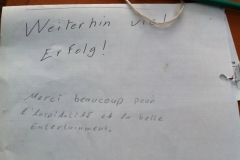 Weiterhin viel
Erfolg!
Merci beaucoup pour
l'hospitalité et la belle
Entertainment.